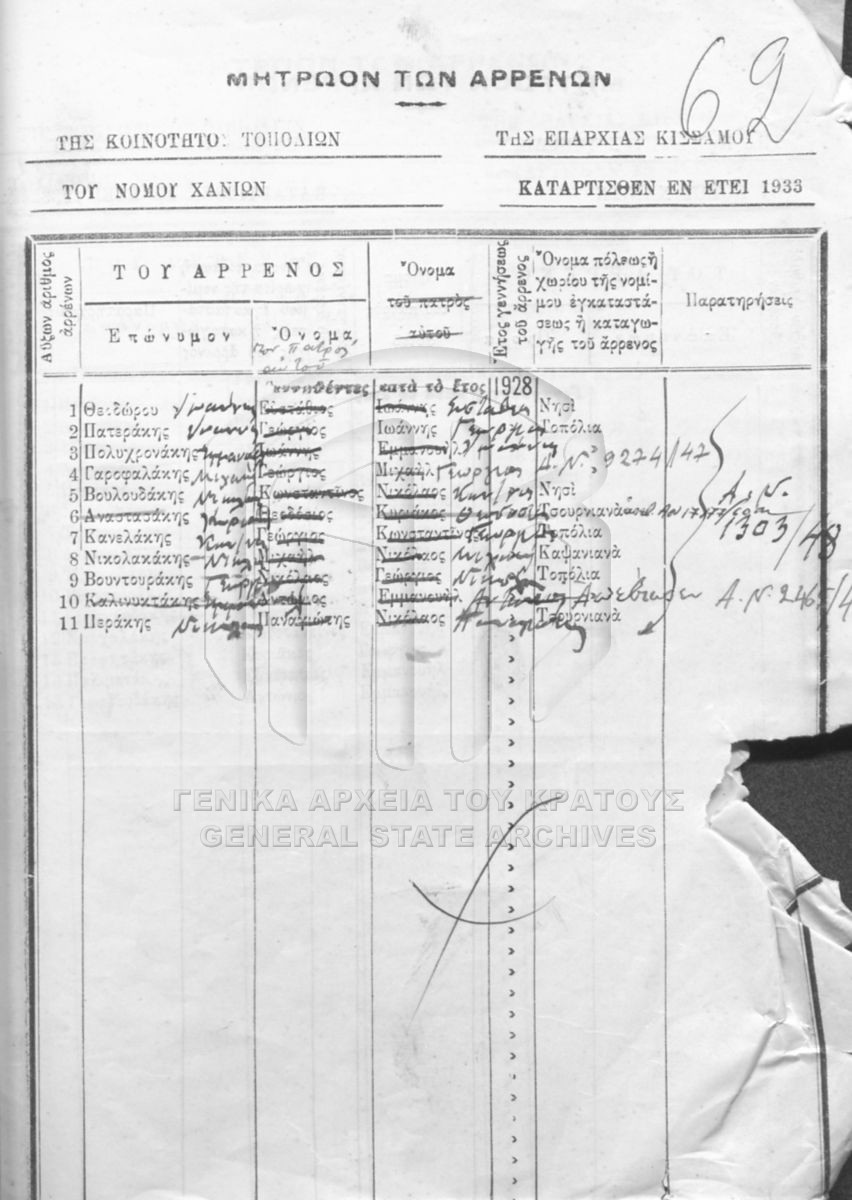 62
ΜΗΤΡΩΟΝ ΤΩΝ ΑΡΡΕΝΩΝ
ΤΗΣ ΚΟΙΝΟΤΗΤΟΣ ΤΟΠΟΛΙΩΝ ΤΗΣ ΕΠΑΡΧΙΑΣ ΚΙΣΣΑΜΟΥ
ΤΟΥ ΝΟΜΟΥ ΧΑΝΙΩΝ ΚΑΤΑΡΤΙΣΘΕΝ ΕΝ ΕΤΕΙ 1933
Αὔξων ἀριθμὸς ἀρρένων
ΤΟΥ ΑΡΡΕΝΟΣ
Ἐπώνυμον
Ὄνομα,
τοῦ πατρὸς
αὐτοῦ
Ὄνομα
τοῦ πατρὸς
αὐτοῦ
Ἔτος γεννήσεως τοῦ ἄρρενος
Ὄνομα πόλεως ἢ
χωρίου τῆς νομί-
μου ἐγκαταστά-
σεως ἢ καταγω-
γῆς τοῦ ἄρρενος
Παρατηρήσεις
Γεννηθέντες κατὰ τὸ ἔτος 1928
1 Θειδώρου Ἰωάννης Εὐστάθιος Ἰωάννης Εὐστάθιος Νησὶ
2 Πατεράκης Ἰωάννης Γεώργιος Ἰωάννης Γεώργιος Τοπόλια
3 Πολυχρονάκης Ἐμμανουὴλ Ἰωάννης Ἐμμανουὴλ Ἰωάννης "
4 Γαροφαλάκης Μιχαὴλ Γεώργιος Μιχαὴλ Γεώργιος " Α.Ν. 9274/47
5 Βουλουδάκης Νικόλαος Κωνσταντῖνος Νικόλαος Κων/νος Νησὶ
6 Αναστασάκης Κυριάκος Θεοδόσιος Κυριάκος Θεοδόσιος Τσουρνιανὰ
7 Κανελάκης Κων/νος Γεώργιος Κωνσταντῖνος Γεώργιος Τοπόλια
8 Νικολακάκης Νικόλαος Μιχαὴλ Νικόλαος Μιχαὴλ Καψανιανὰ
9 Βουντουράκης Γεώργιος Νικόλαος Γεώργιος Νικόλαος Τοπόλια
10 Καλινυκτάκης Ἐμμανουὴλ Ἀντώνιος Ἐμμανουὴλ Ἀντώνιος Ἀπεβίωσεν Α.Ν.
11 Περάκης Νικόλαος Παναγιώτης Νικόλαος Παναγιώτης Τσουρνιανὰ
Α.Ν.
1303/48
ΓΕΝΙΚΑ ΑΡΧΕΙΑ ΤΟΥ ΚΡΑΤΟΥΣ
GENERAL STATE ARCHIVES